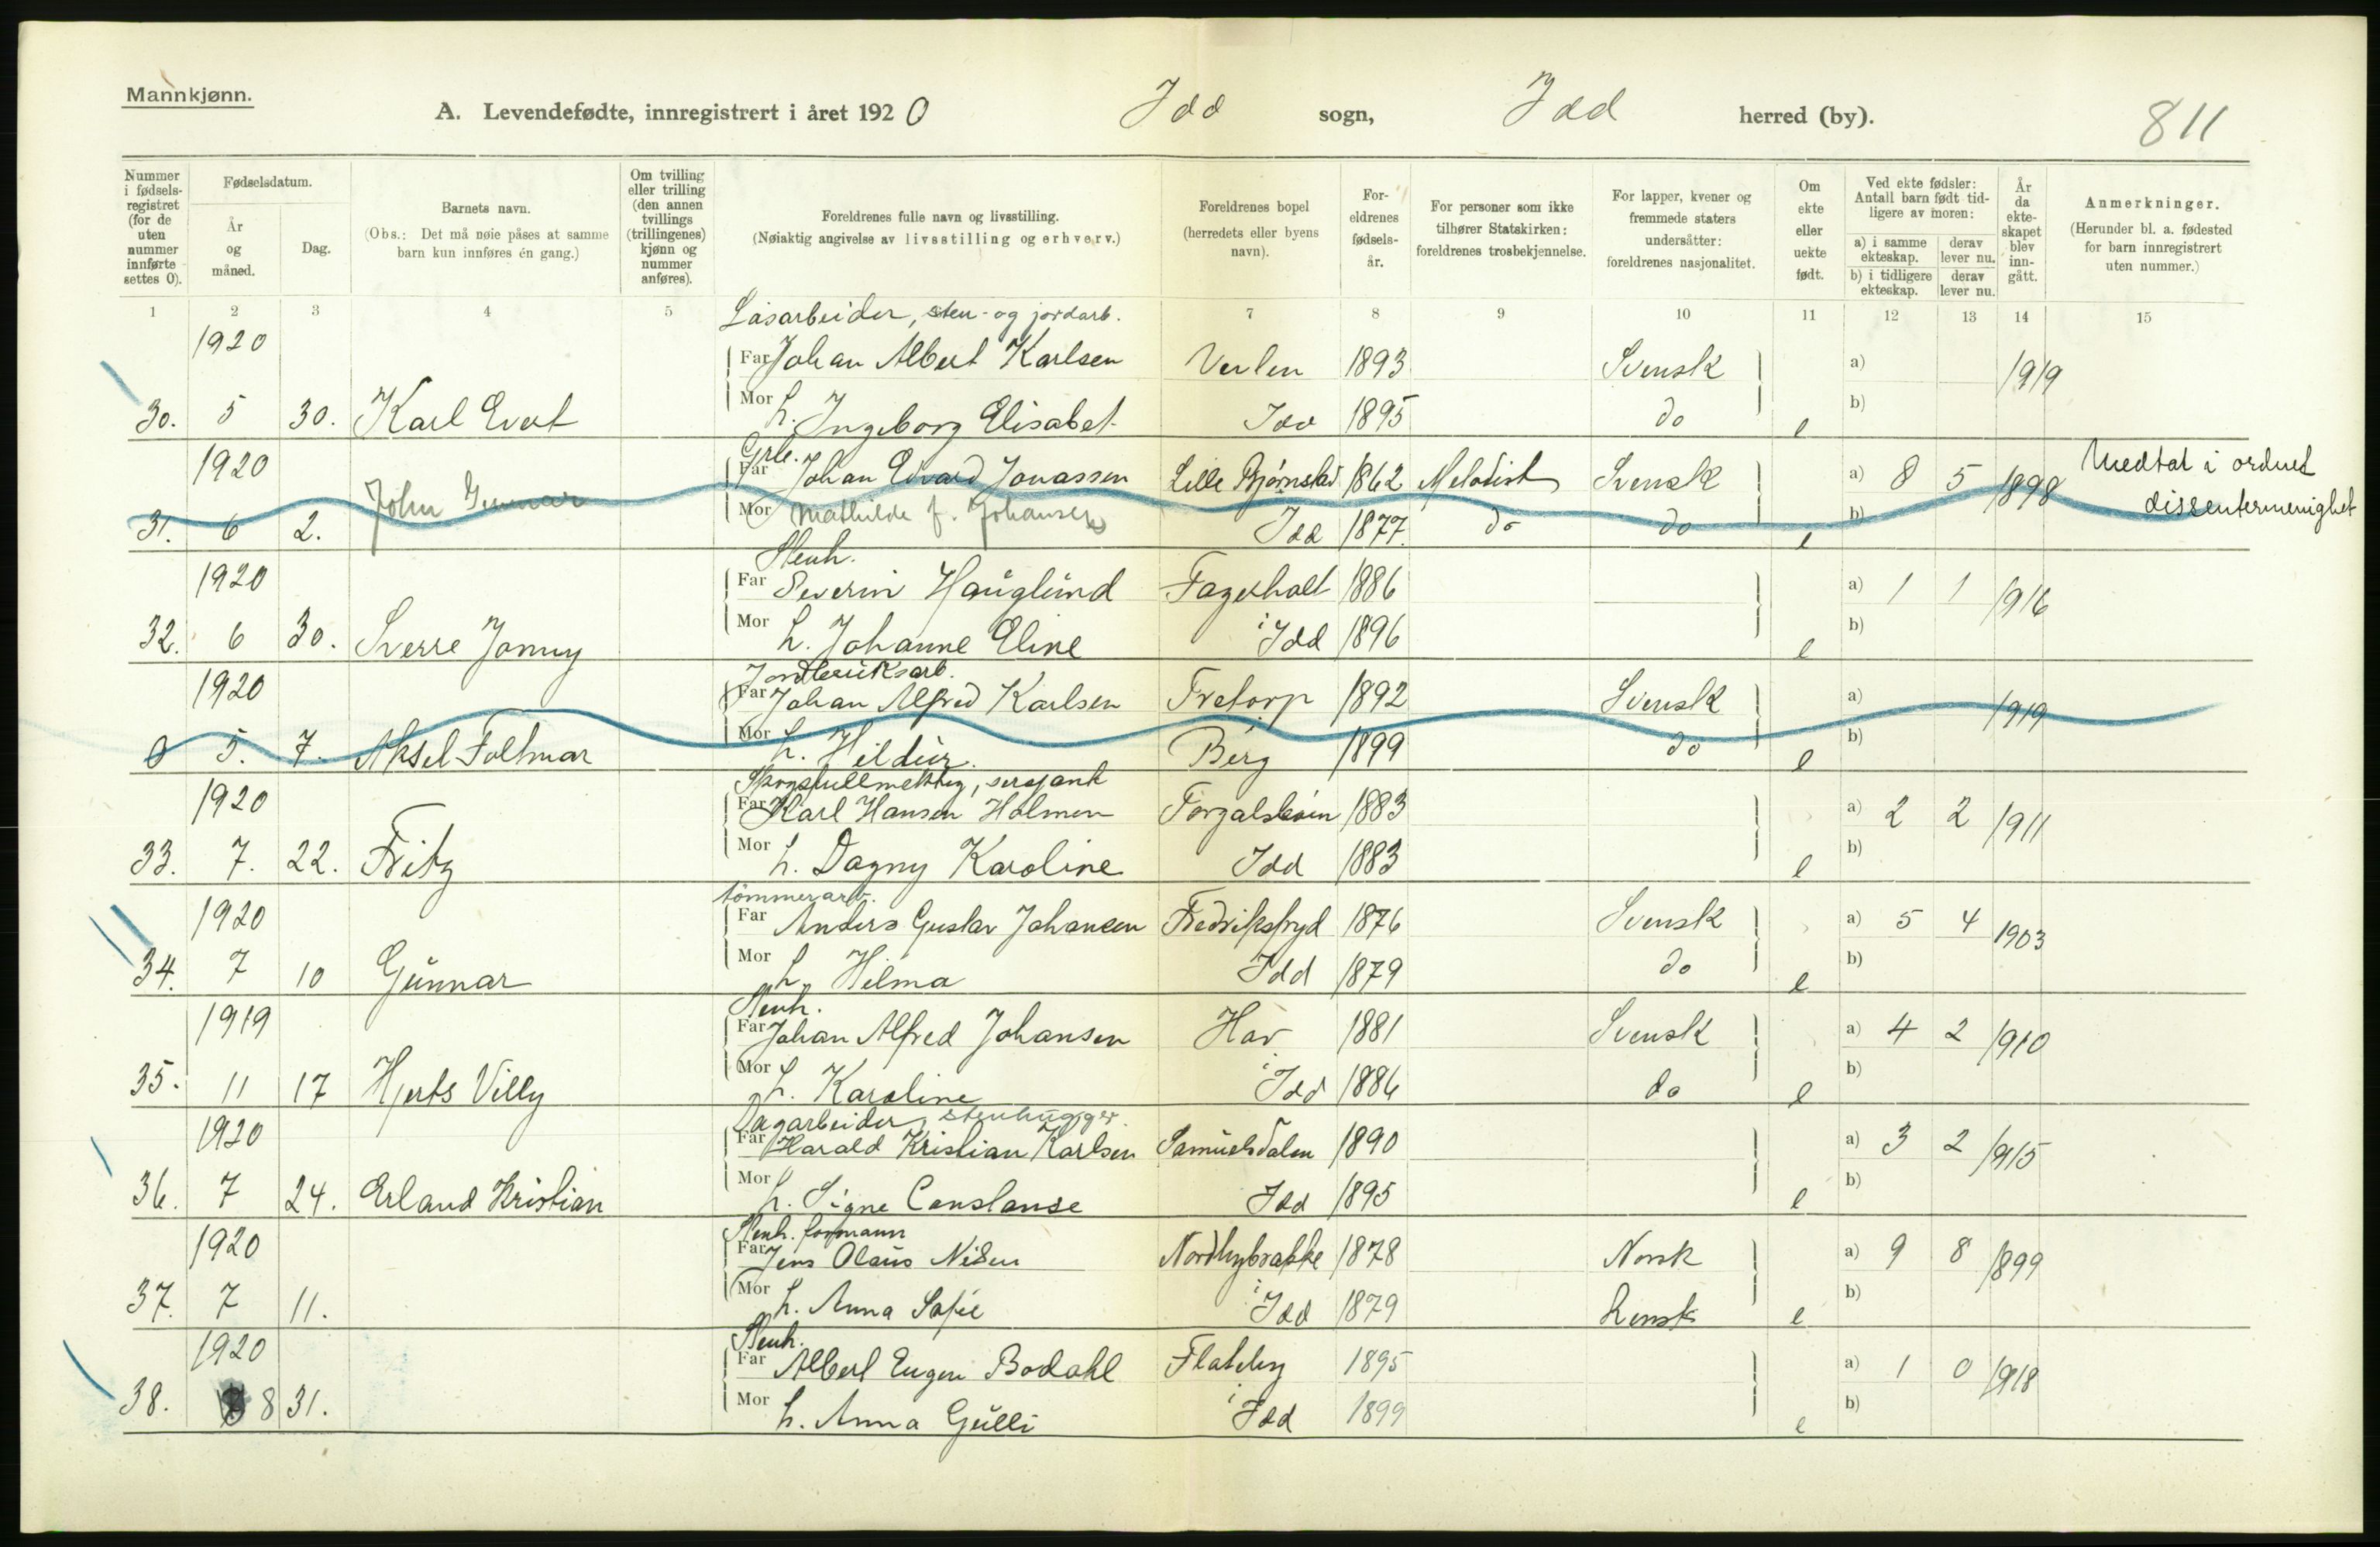 Mannkjønn.
A. Levendefødte, innregistrert i året 1920 Idd sogn, Idd herred (by). 811
Nummer i fødselsregistret (for de uten nummer innførte settes 0).
Fødselsdatum.
År og måned.
Dag.
Barnets navn.
(Obs.: Det må nøie påses at samme barn kun innføres én gang.)
Om tvilling eller trilling (den annen tvillings (trillingenes) kjønn og nummer anføres).
Foreldrenes fulle navn og livsstilling.
(Nøiaktig angivelse av livsstilling og erhverv.)
Foreldrenes bopel (herredets eller byens navn).
Foreldrenes fødselsår.
For personer som ikke tilhører Statskirken: foreldrenes trosbekjennelse.
For lapper, kvener og fremmede staters undersåtter: foreldrenes nasjonalitet.
Om ekte eller uekte født.
Ved ekte fødsler: Antall barn født tidligere av moren:
a) i samme ekteskap. derav lever nu.
b) i tidligere ekteskap. derav lever nu.
År da ekteskapet blev inngått.
Anmerkninger.
(Herunder bl. a. fødested for barn innregistrert uten nummer.)
1 2 3 4 5 7 8 9 10 11 12 13 14 15
Løsarbeider, sten- og jordarb.
1920 Far Johan Albert Karlsen 1893 Svensk a) 1919
30. 5 30. Karl Evert Mor h. Ingeborg Elisabet Idd 1895 do e b)
Grbr.
1920 Far Johan Edvard Jonassen Lille Bjørnstad 1862 Metodist Svensk a) 8 5 1898 Medtat i ordnet
31. 6 2. John Gunnar Mor Mathilde f. Johansen Idd 1877 do do e b) dissentermenighet
Stenh.
1920 Far Severin Hauglund Fagerholt 1886 a) 1 1 1916
32. 6 30. Sverre Jonny Mor h. Johanne Eline i Idd 1896 e b)
Jordbruksarb.
1920 Far Johan Alfred Karlsen Fretorp 1892 Svensk a) 1919
0 5. 7. Aksel Foltmar Mor h. Hildur. Berg 1899 do e b)
Skogsfullmektig, sersjant
1920 Far Karl Hansen Holmen 1883 a) 2 2 1911
33. 7. 22. Fritz Mor h. Dagny Karoline Idd 1883 e b)
tømmerarb.
1920 Far Anders Gustav Johansen Fredriksfryd 1876 Svensk a) 5 4 1903
34. 7 10 Gunnar Mor h. Hilma Idd 1879 do e b)
Stenh.
1919 Far Johan Alfred Johansen Hov 1881 Svensk a) 4 2 1910
35. 11 17 Hjerts Villy Mor h. Karoline i Idd 1886 do e b)
Dagarbeider, stenhugger.
1920 Far Harald Kristian Karlsen Samuelsdalen 1890 a) 3 2 1915
36. 7 24. Erland Kristian Mor h. Signe Constanse Idd 1895 e b)
Stenh. formann
1920 Far Jens Olaus Nilsen Nordbybrække 1878 Norsk a) 9 8 1899
37. 7 11. Mor h. Anna Sofie i Idd 1879 e b)
Stenh.
1920 Far Albert Eugen Bodahl Flateby 1895 a) 1 0 1918
38. 8 31. Mor h. Anna Gulli i Idd 1899 e b)